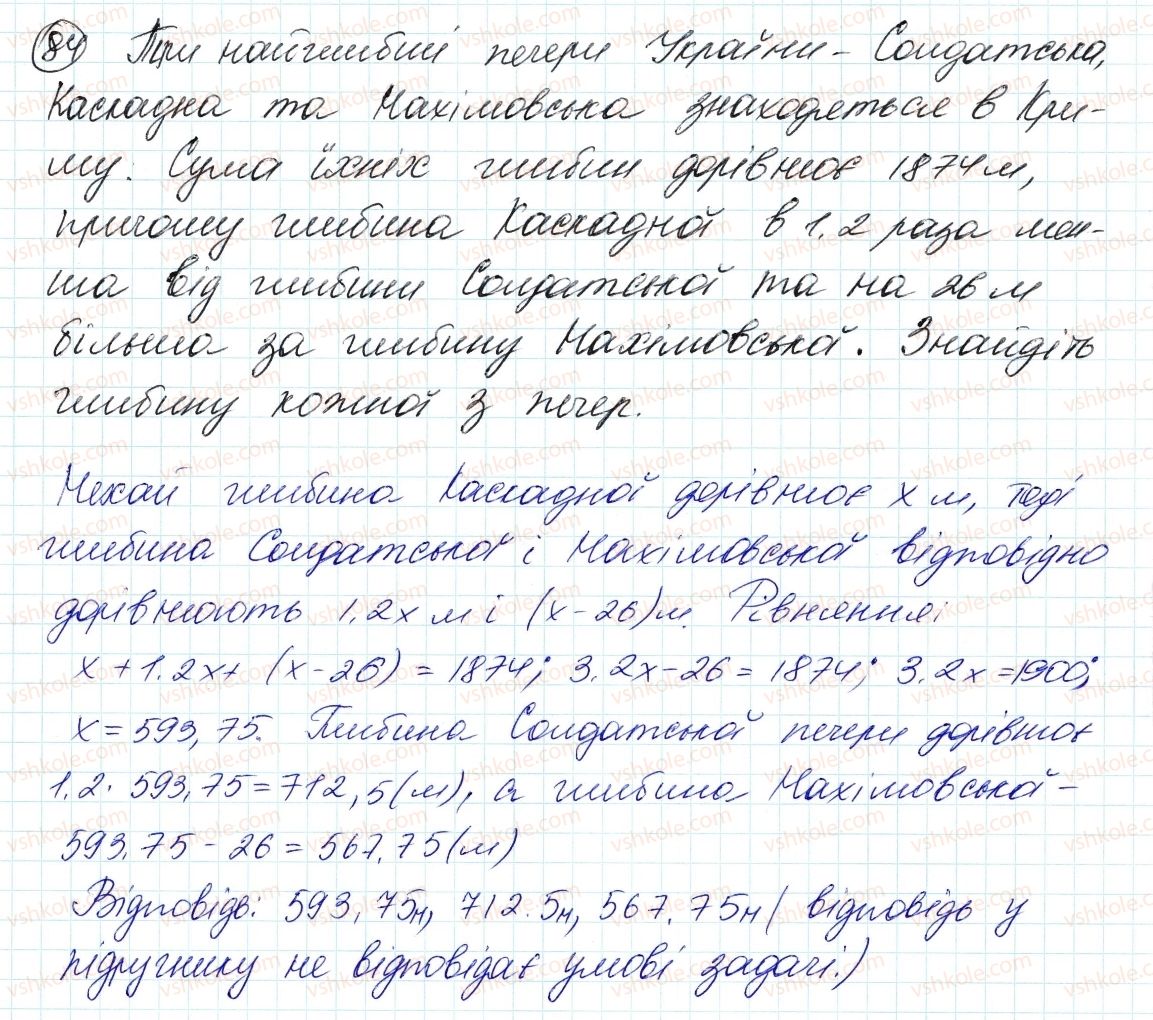 84 Три найглибші печери України - Солдатська,
Каскадна та Нахімовська знаходяться в Кри-
му. Сума їхніх глибин дорівнює 1874 м,
причому глибина Каскадної в 1,2 раза мен-
ша від глибини Солдатської та на 26 м
більша за глибину Нахімовської. Знайдіть
глибину кожної з печер.
Нехай глибина Каскадної дорівнює x м, тоді
глибина Солдатської і Нахімовської відповідно
дорівнюють 1,2x м і (x - 26) м. Рівняння:
x + 1,2x + (x - 26) = 1874; 3,2x - 26 = 1874; 3,2x = 1900;
x = 593,75. Глибина Солдатської печери дорівнює
1,2 · 593,75 = 712,5 (м), а глибина Нахімовської -
593,75 - 26 = 567,75 (м)
Відповідь: 593,75м, 712,5м, 567,75м (відповідь у
підручнику не відповідає умові задачі.)